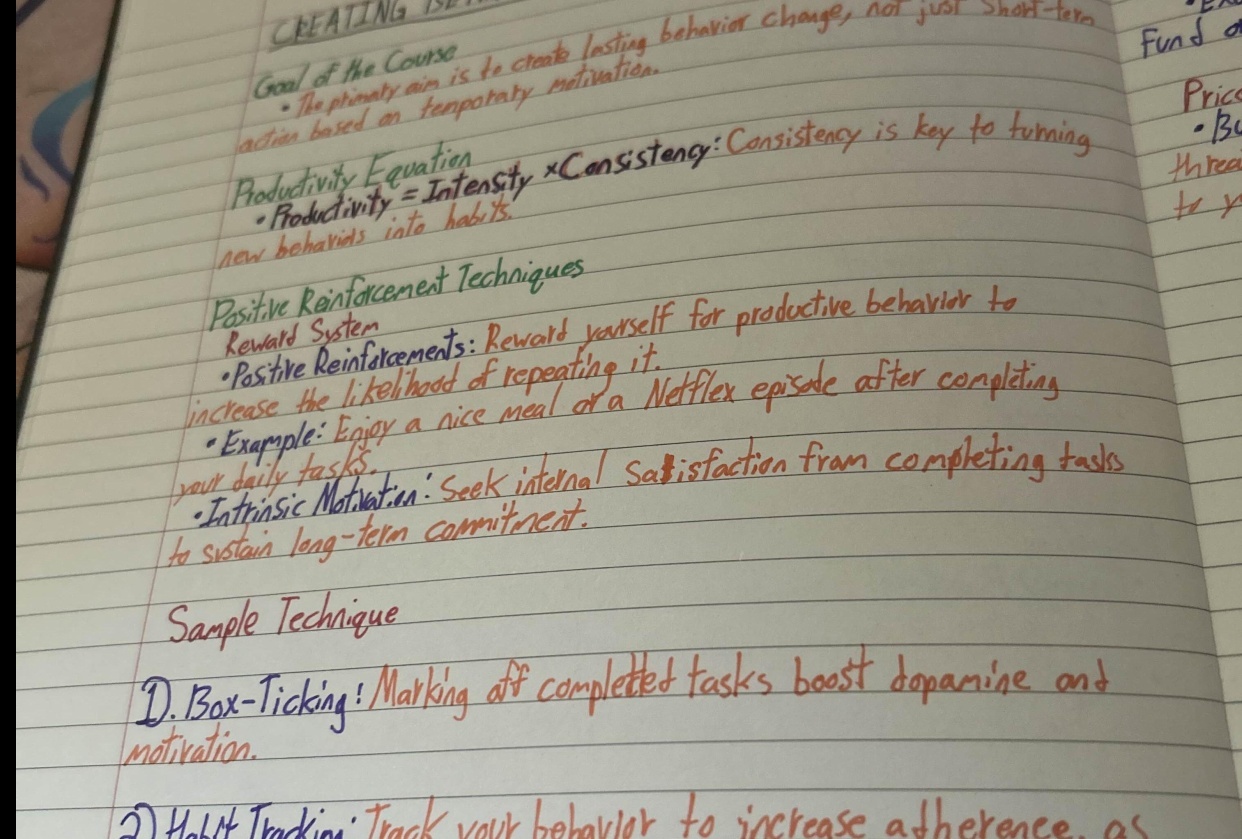 CREATING
Goal of the Course
• The primary aim is to create lasting behavior change, not just short-term
action based on temporary motivation.
Productivity Equation
• Productivity = Intensity × Consistency: Consistency is key to turning
new behaviors into habits.
Positive Reinforcement Techniques
Reward System
• Positive Reinforcements: Reward yourself for productive behavior to
increase the likelihood of repeating it.
• Example: Enjoy a nice meal or a Netflex episode after completing
your daily tasks.
• Intrinsic Motivation: Seek internal Satisfaction from completing tasks
to sustain long-term commitment.
Sample Technique
1). Box-Ticking: Marking off completted tasks boost dopamine and
motivation.
2) Habit Tracking: Track your behavior to increase adherence, as
Fund
to